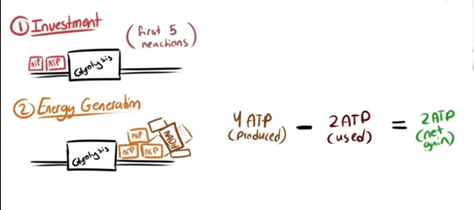 ① Investment
(first 5
reactions)
ATP ATP
Glycolysis
② Energy Generation
ATP ATP
ATP ATP
NADH
Glycolysis
4 ATP
(produced)
−
2 ATP
(used)
=
2 ATP
(net
gain)